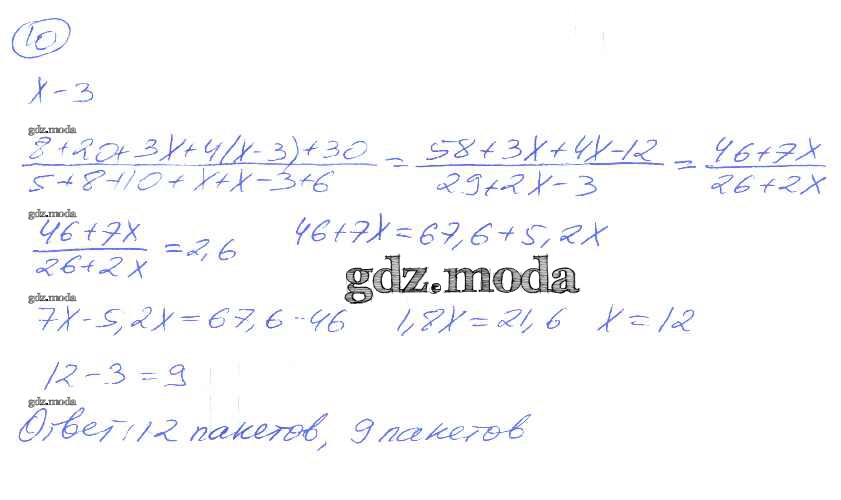 10
x - 3
gdz.moda
(8+20+3x+4(x-3)+30)/(5+8+10+x+x-3+6) = (58+3x+4x-12)/(29+2x-3) = (46+7x)/(26+2x)
gdz.moda
(46+7x)/(26+2x) = 2,6 46+7x=67,6+5,2x
gdz.moda
gdz.moda
7x-5,2x=67,6-46 1,8x=21,6 x=12
12-3=9
gdz.moda
Ответ: 12 пакетов, 9 пакетов